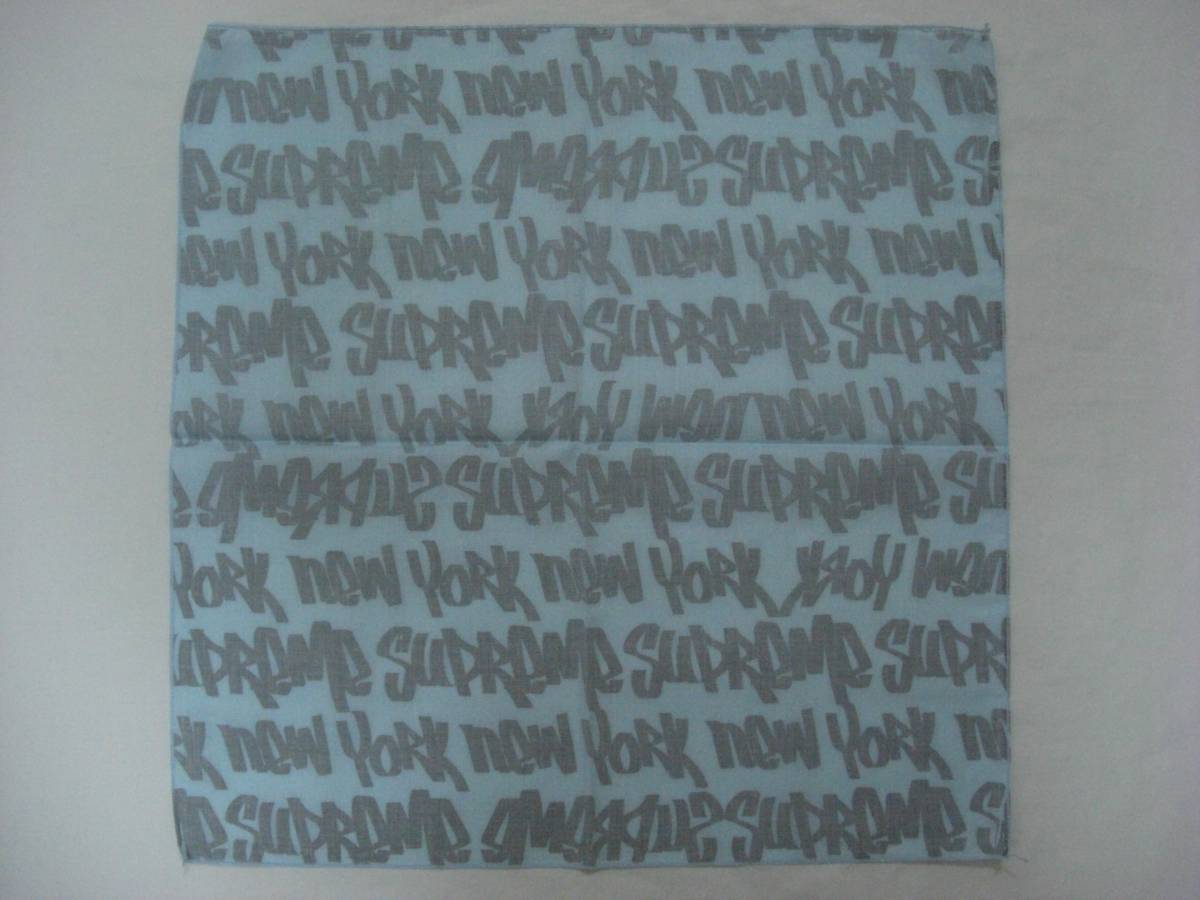 NEW YORK NEW YORK NEW YORK NE
E SUPREME SUPREME SUPREME S
EW YORK NEW YORK NEW YORK NEW Y
PREME SUPREME SUPREME SUPR
ORK NEW YORK YORK NEW NEW YORK
E SUPREME SUPREME SUPREME SU
YORK NEW YORK NEW YORK YORK NEW
UPREME SUPREME SUPREME SUPR
RK NEW YORK NEW YORK NEW YORK NE
E SUPREME SUPREME SUPREME S